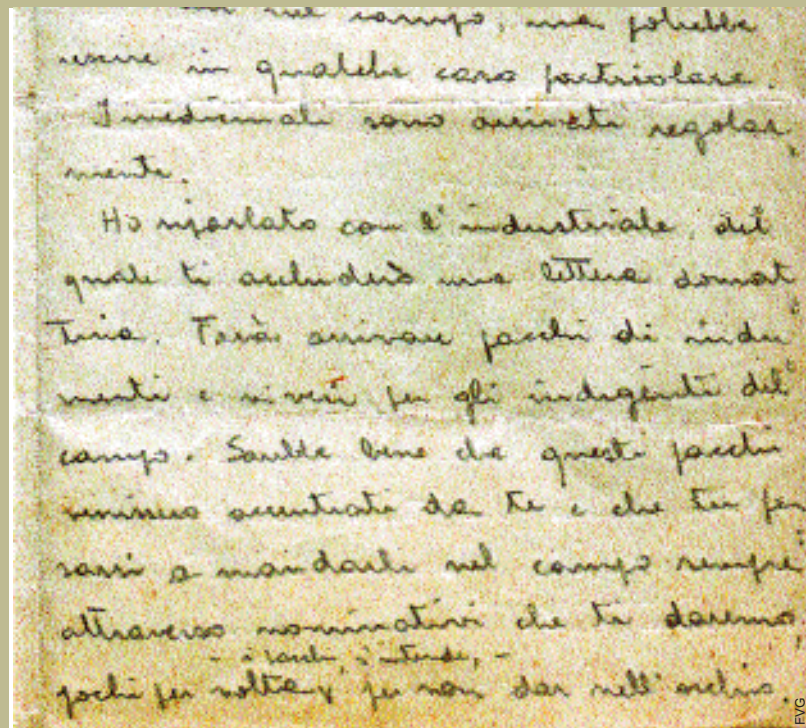 nel campo, ma potrebbe
uscire in qualche caso particolare.
I medicinali sono arrivati regolar
mente.
Ho riparlato con l'industriale, del
quale ti accluderò una lettera domat
tina. Farà arrivare pacchi di indu
menti e viveri per gli indigenti del
campo. Sarebbe bene che questi pacchi
venissero accentrati da te e che tu pen
sassi a mandarli nel campo sempre
attraverso nominativi che ti daremo,
- i pacchi, s'intende, -
pochi per volta, per non dar nell'occhio.
FVG